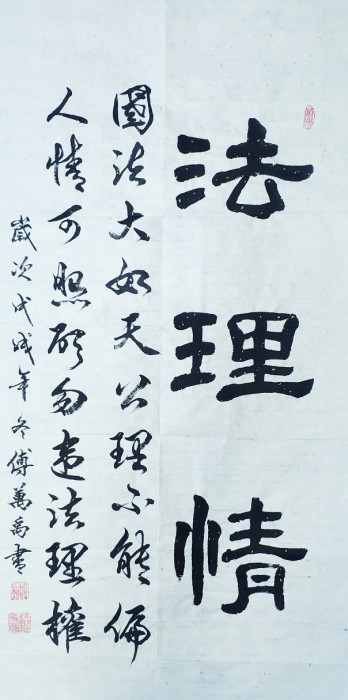 法理情
國法大如天公理不能偏
人情可照顧勿違法理權
歲次戊戌年冬傅萬禹書